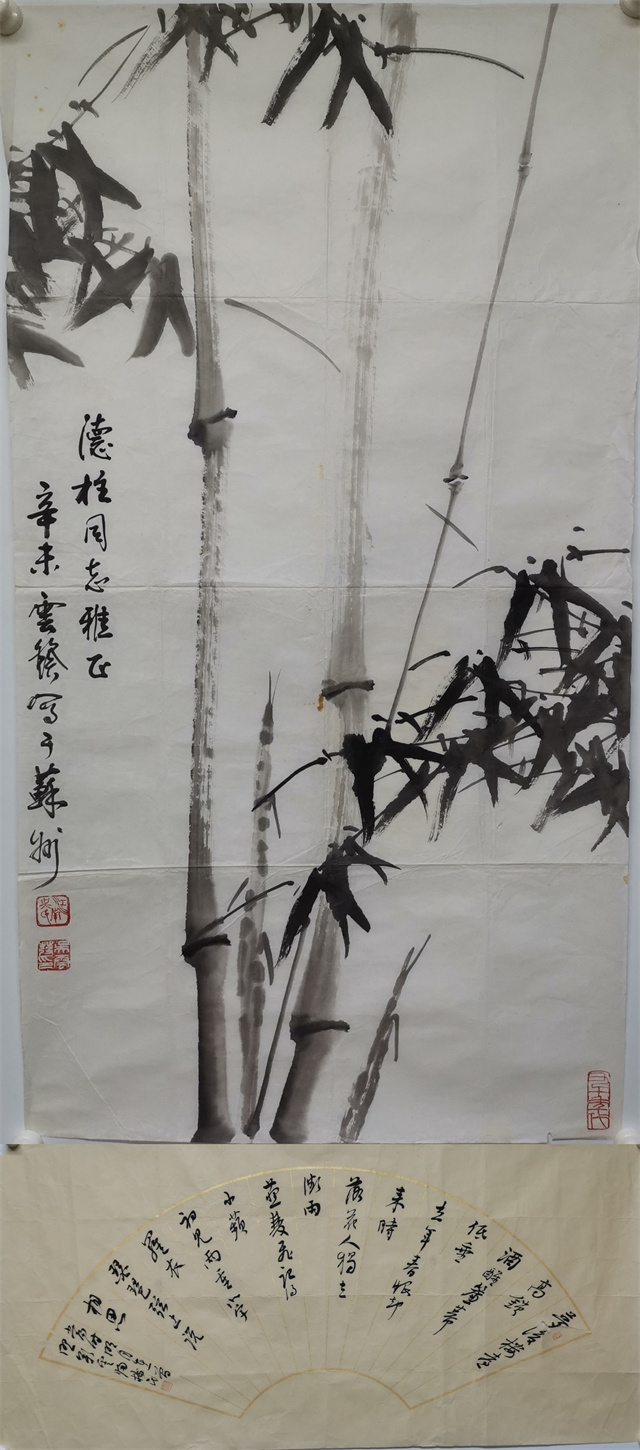 德柱同志雅正
辛未雲寫于蘇州
夢後樓臺
高鎖
酒醒簾幕
低垂
去年春恨却
来時
落花人獨立
微雨
燕雙飛記得
小蘋
初見两重心字
羅衣
琵琶弦上说
相思
當時明月在曾
照彩雲歸